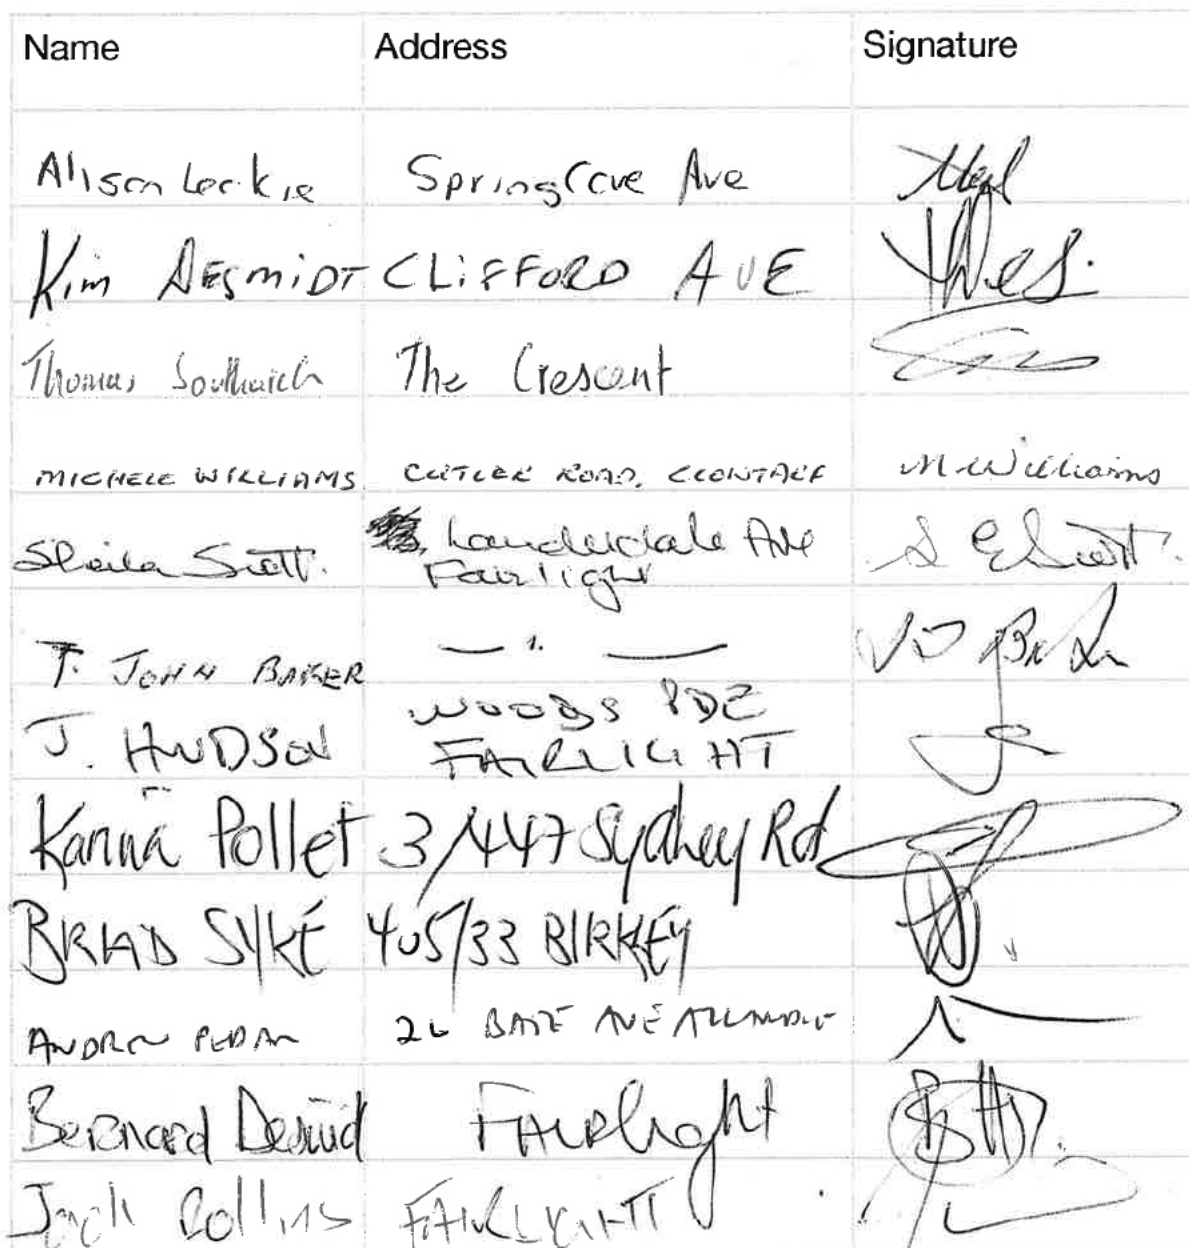 Name Address Signature
Alison Leckie Spring Cove Ave
Kim DESMIDT CLIFFORD AVE
Thomas Southwich The Crescent
MICHELE WILLIAMS. CUTLER ROAD, CLONTARF M Williams
Sheila Scott. Lauderdale Ave S E Scott.
Fairlight
T. JOHN BAKER — ". —
WOODS PDE
J. HUDSON FAIRLIGHT
Pollet 3/447 Sydney Rd
BRAD SYKE 405/33 BIRKLEY
26 BATE AVE ALLAMBIE
Bernard Fairlight
Jack Rollins FAIRLIGHT